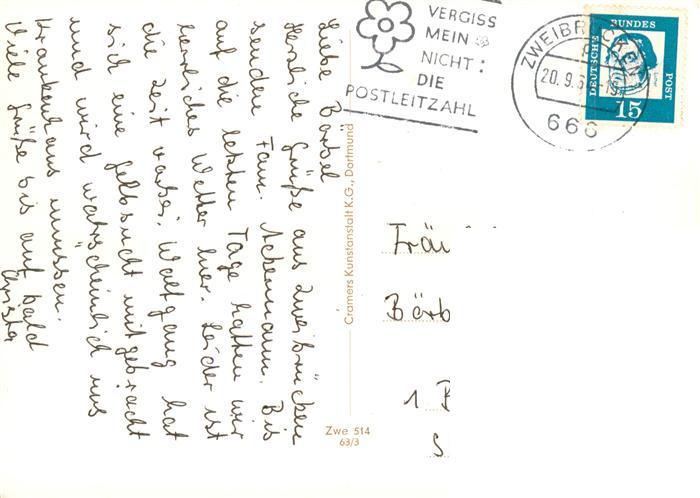 Liebe Bärbel
Herzliche Grüße aus Zweibrücken
senden Fam. Ackermann. Bis
auf die letzten Tage hatten wir
herrliches Wetter hier. Leider ist
die Zeit vorbei. Wolfgang hat
sich eine Gelbsucht mitgebracht
und wird wahrscheinlich ins
Krankenhaus müssen.
Viele Grüße bis auf bald
Christa
VERGISS
MEIN
NICHT:
DIE
POSTLEITZAHL
ZWEIBRÜCKEN
20.9.6
666
DEUTSCHE BUNDESPOST
15
Cramers Kunstanstalt K.G., Dortmund
Zwe 514
63/3
Fräu
Bärb
1